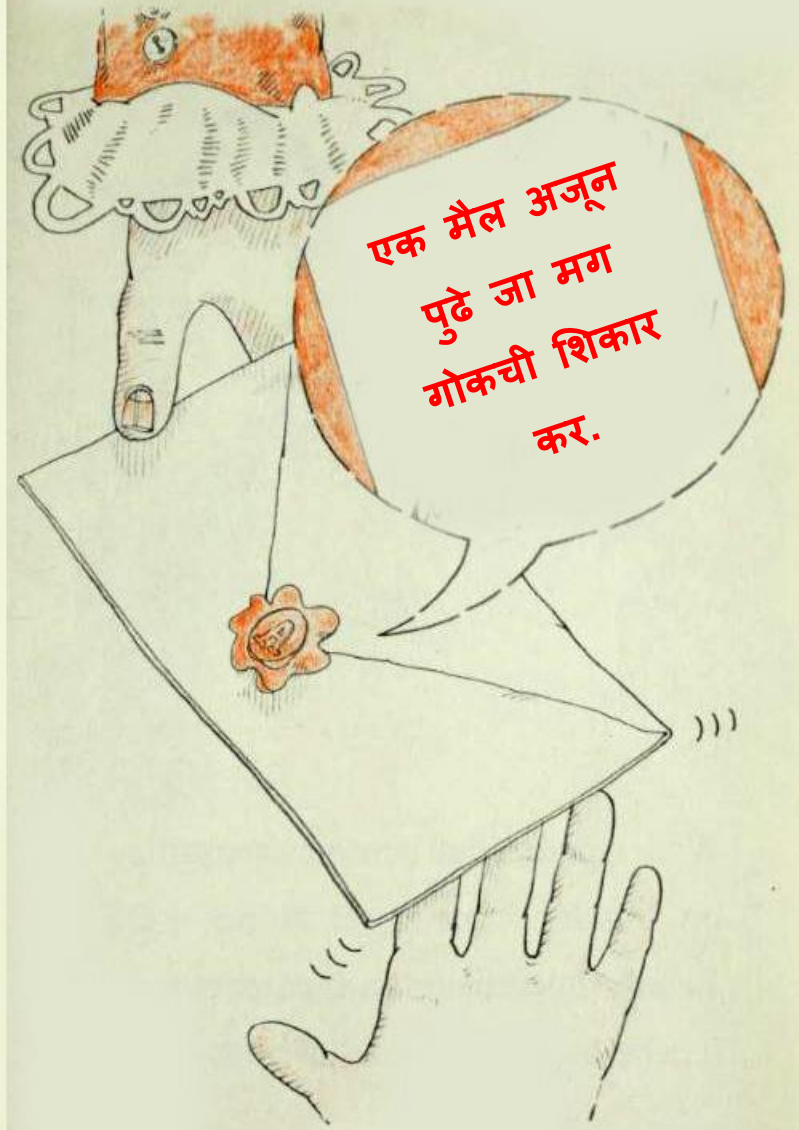 एक मैल अजून
पुढे जा मग
गोकची शिकार
कर.